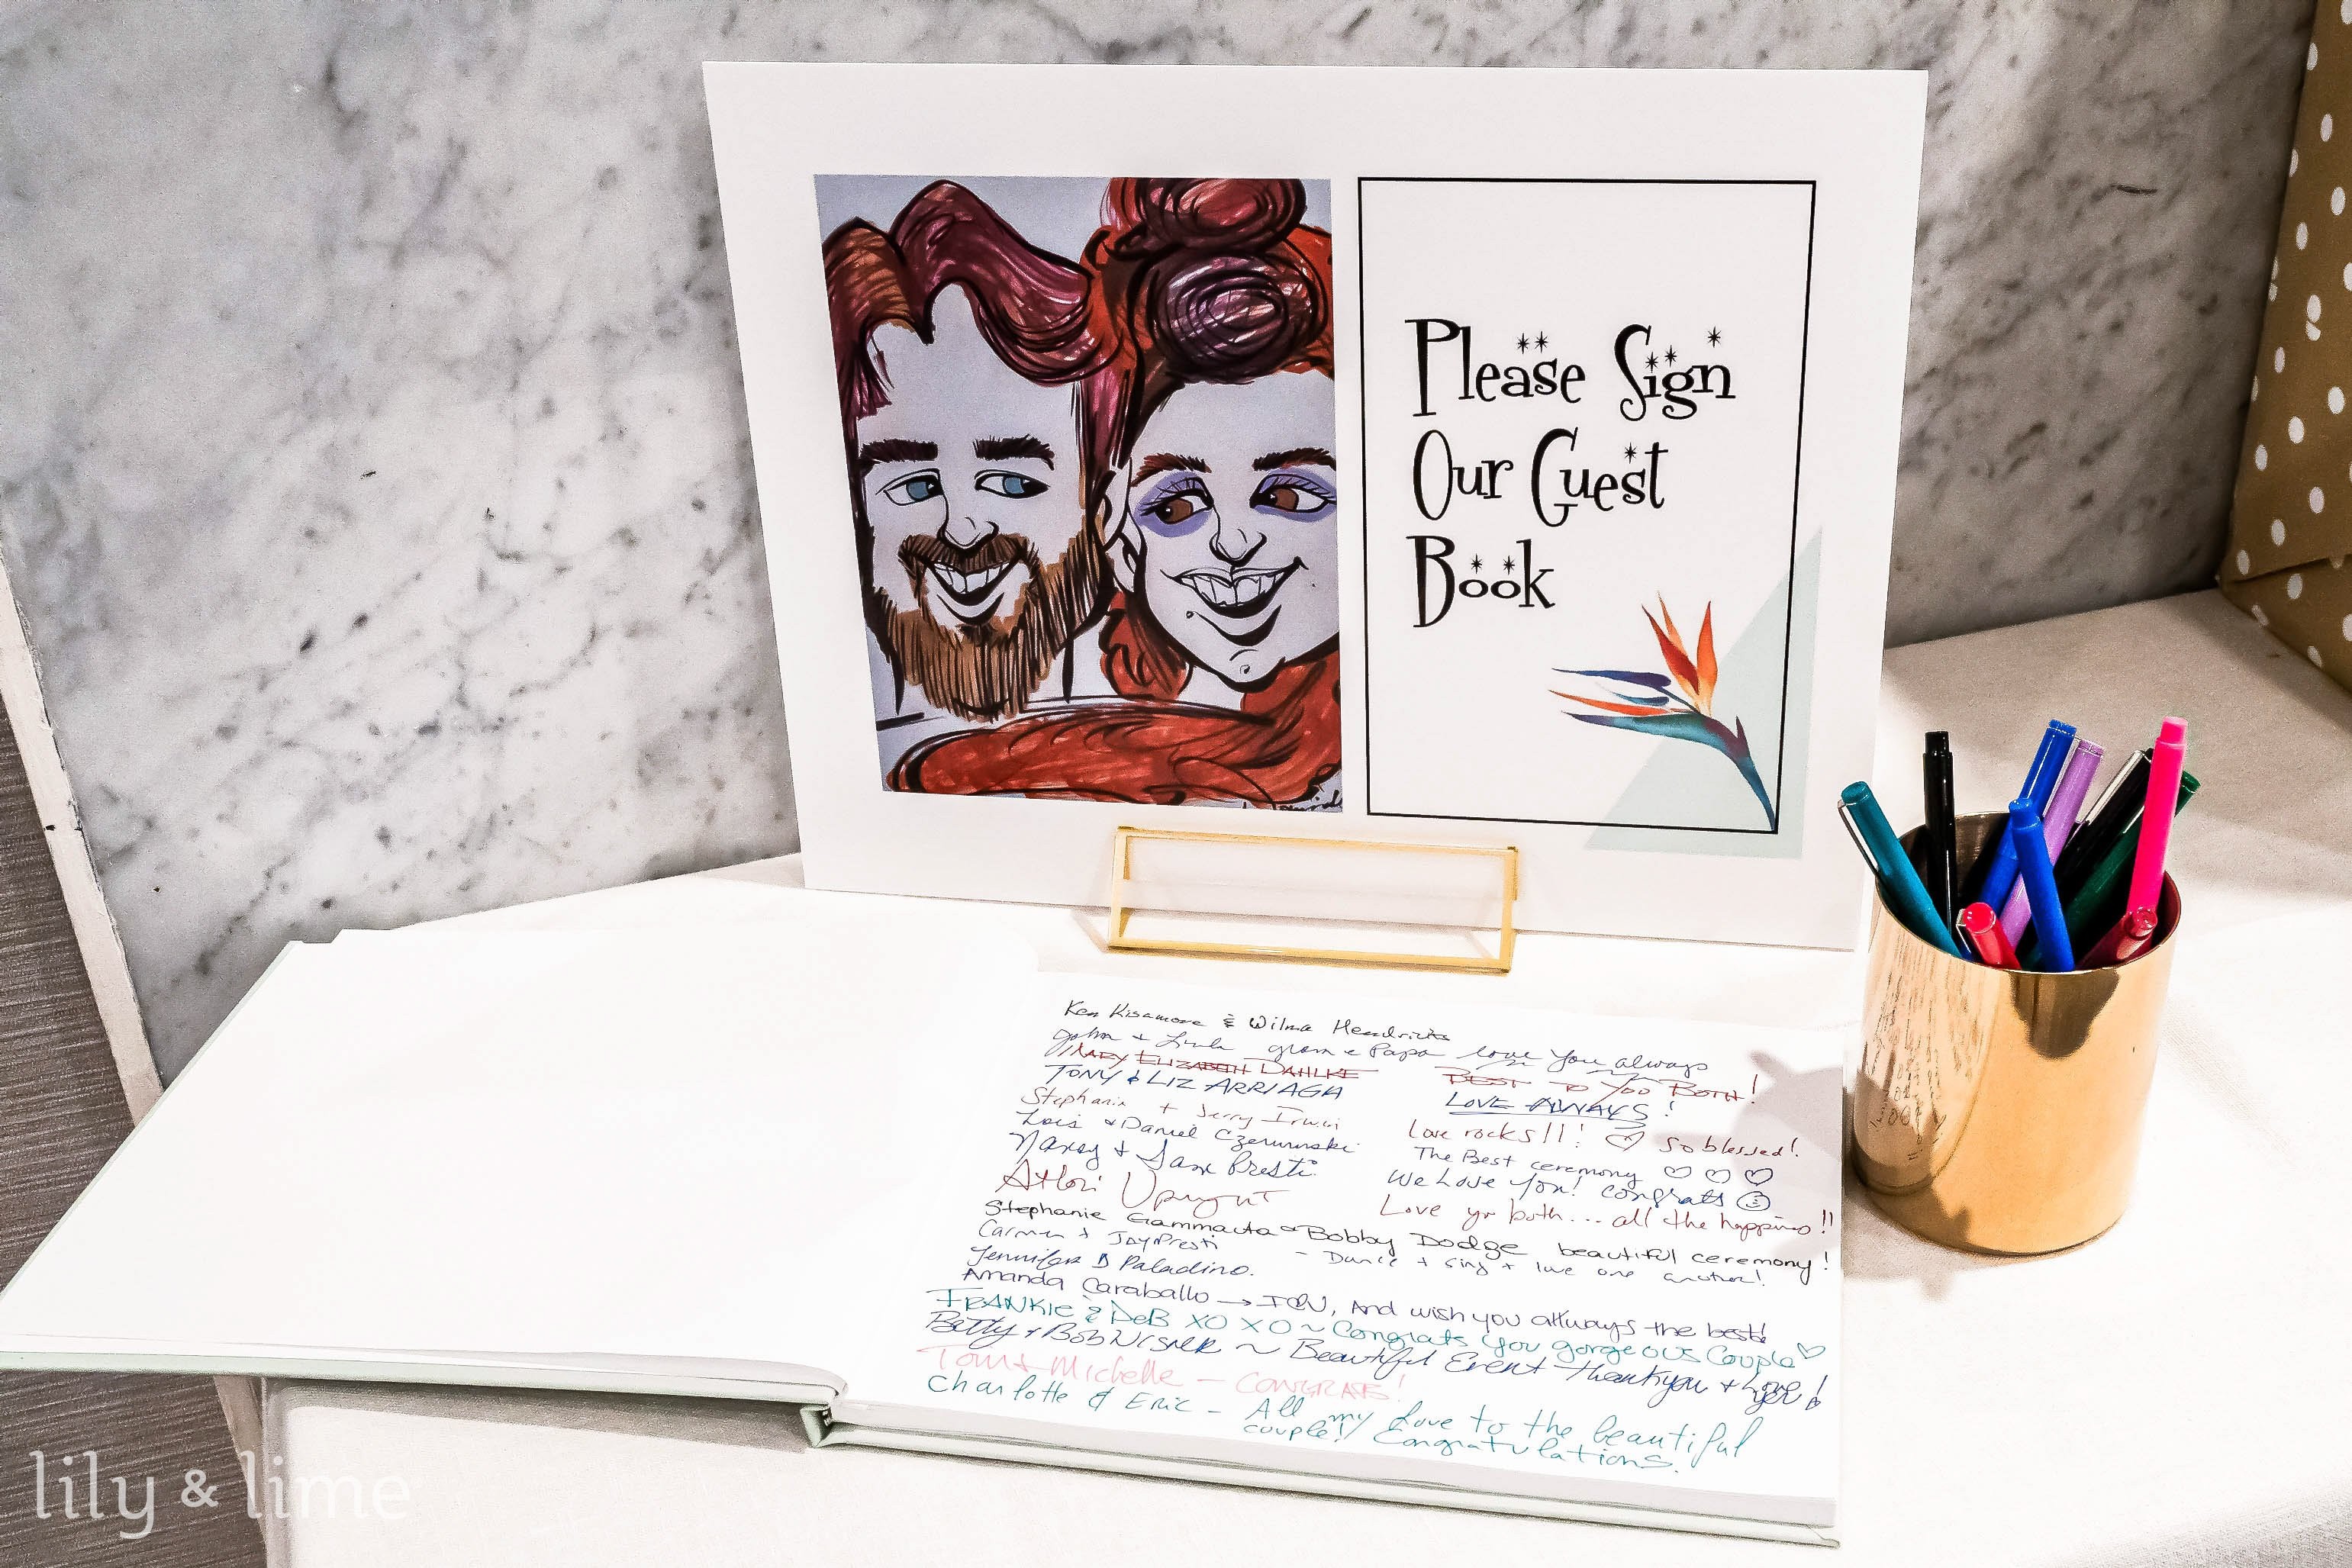 Please Sign
Our Guest
Book
Ken Kisamore & Wilma Hendricks
John + Linda Gram & Papa love you always
MARY ELIZABETH DAHLKE BEST TO YOU BOTH!
TONY & LIZ ARRIAGA LOVE ALWAYS!
Stephanie + Jerry Irwin Love rocks!!! ♡ so blessed!
Lois & Daniel Czerwinski The Best ceremony ♡ ♡ ♡
Nancy & Sam Presti We Love You! Congrats ☺
Love you both... all the happiness!!
Stephanie Giammauta & Bobby Dodge beautiful ceremony!
Carmen & Jay Presti - Dance + sing + love one another!
Jennifer D Paladino.
Amanda Caraballo → And wish you allways the best!
FRANKIE & DeB XO XO ~ Congrats you gorgeous couple ♡
Betty & Bob ~ Beautiful Event Thankyou +
Tom + Michelle - CONGRATS!
Charlotte & Eric - All my Love to the beautiful
couple! Congratulations.
lily & lime